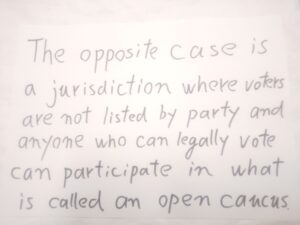 The opposite case is
a jurisdiction where voters
are not listed by party and
anyone who can legally vote
can participate in what
is called an open caucus.